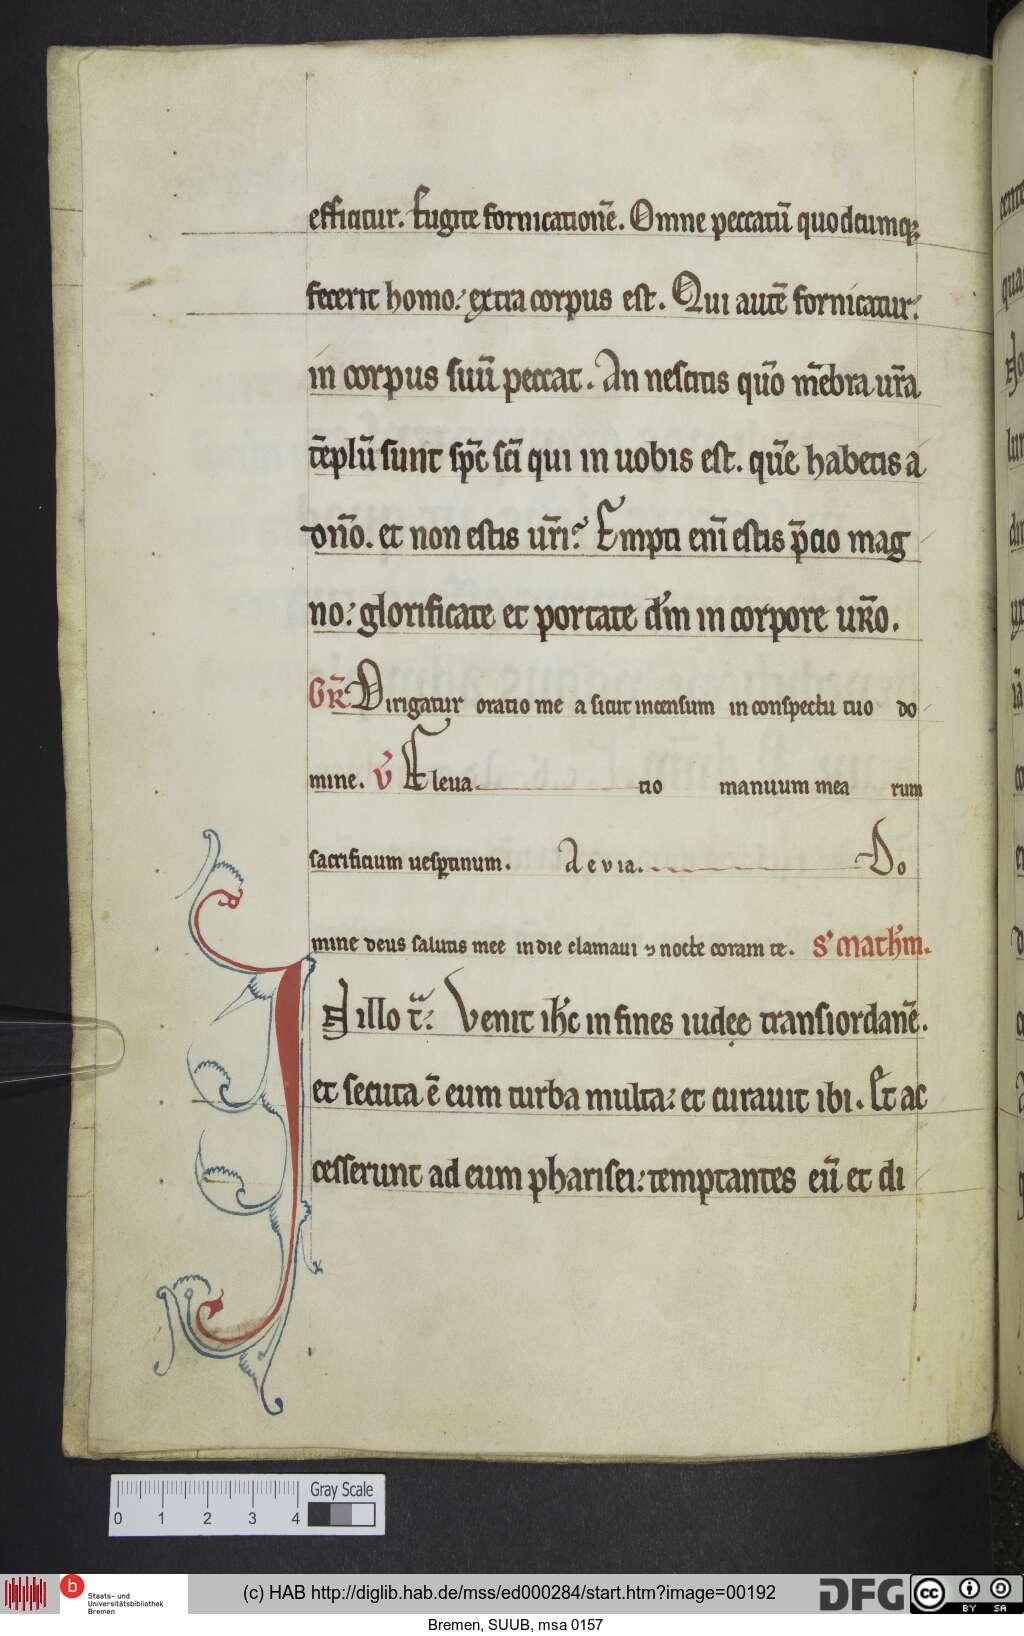 efficitur. Fugite fornicationē. Omne peccatū quodcumqꝫ
fecerit homo: extra corpus est. Qui autē fornicatur:
in corpus suū peccat. An nescitis quō mēbra ur̄a
tēplū sunt spc̄ sc̄i qui in uobis est. quē habetis a
dn̄o. et non estis ur̄i? Empti eni᷎ estis p̄cio mag
no: glorificate et portate dm̄ in corpore ur̄o.
GR̄. Dirigatur oratio me a sicut incensum in conspectu tuo do
mine. v̄ Eleua tio manuum mea rum
sacrificium uesꝑtinum. A e v ia. Do
mine deus salutis mee in die clamaui ⁊ nocte coram te. S' math̄m.
In illo t̄: Venit ih̄c in fines iudeę transiordanē.
et secuta ē eum turba multa: et curauit ibi. Et ac
cesserunt ad eum pharisei: temptantes eū et di
Gray Scale
0 1 2 3 4
b Staats- und
Universitätsbibliothek
Bremen
(c) HAB http://diglib.hab.de/mss/ed000284/start.htm?image=00192
DFG
cc BY SA
Bremen, SUUB, msa 0157